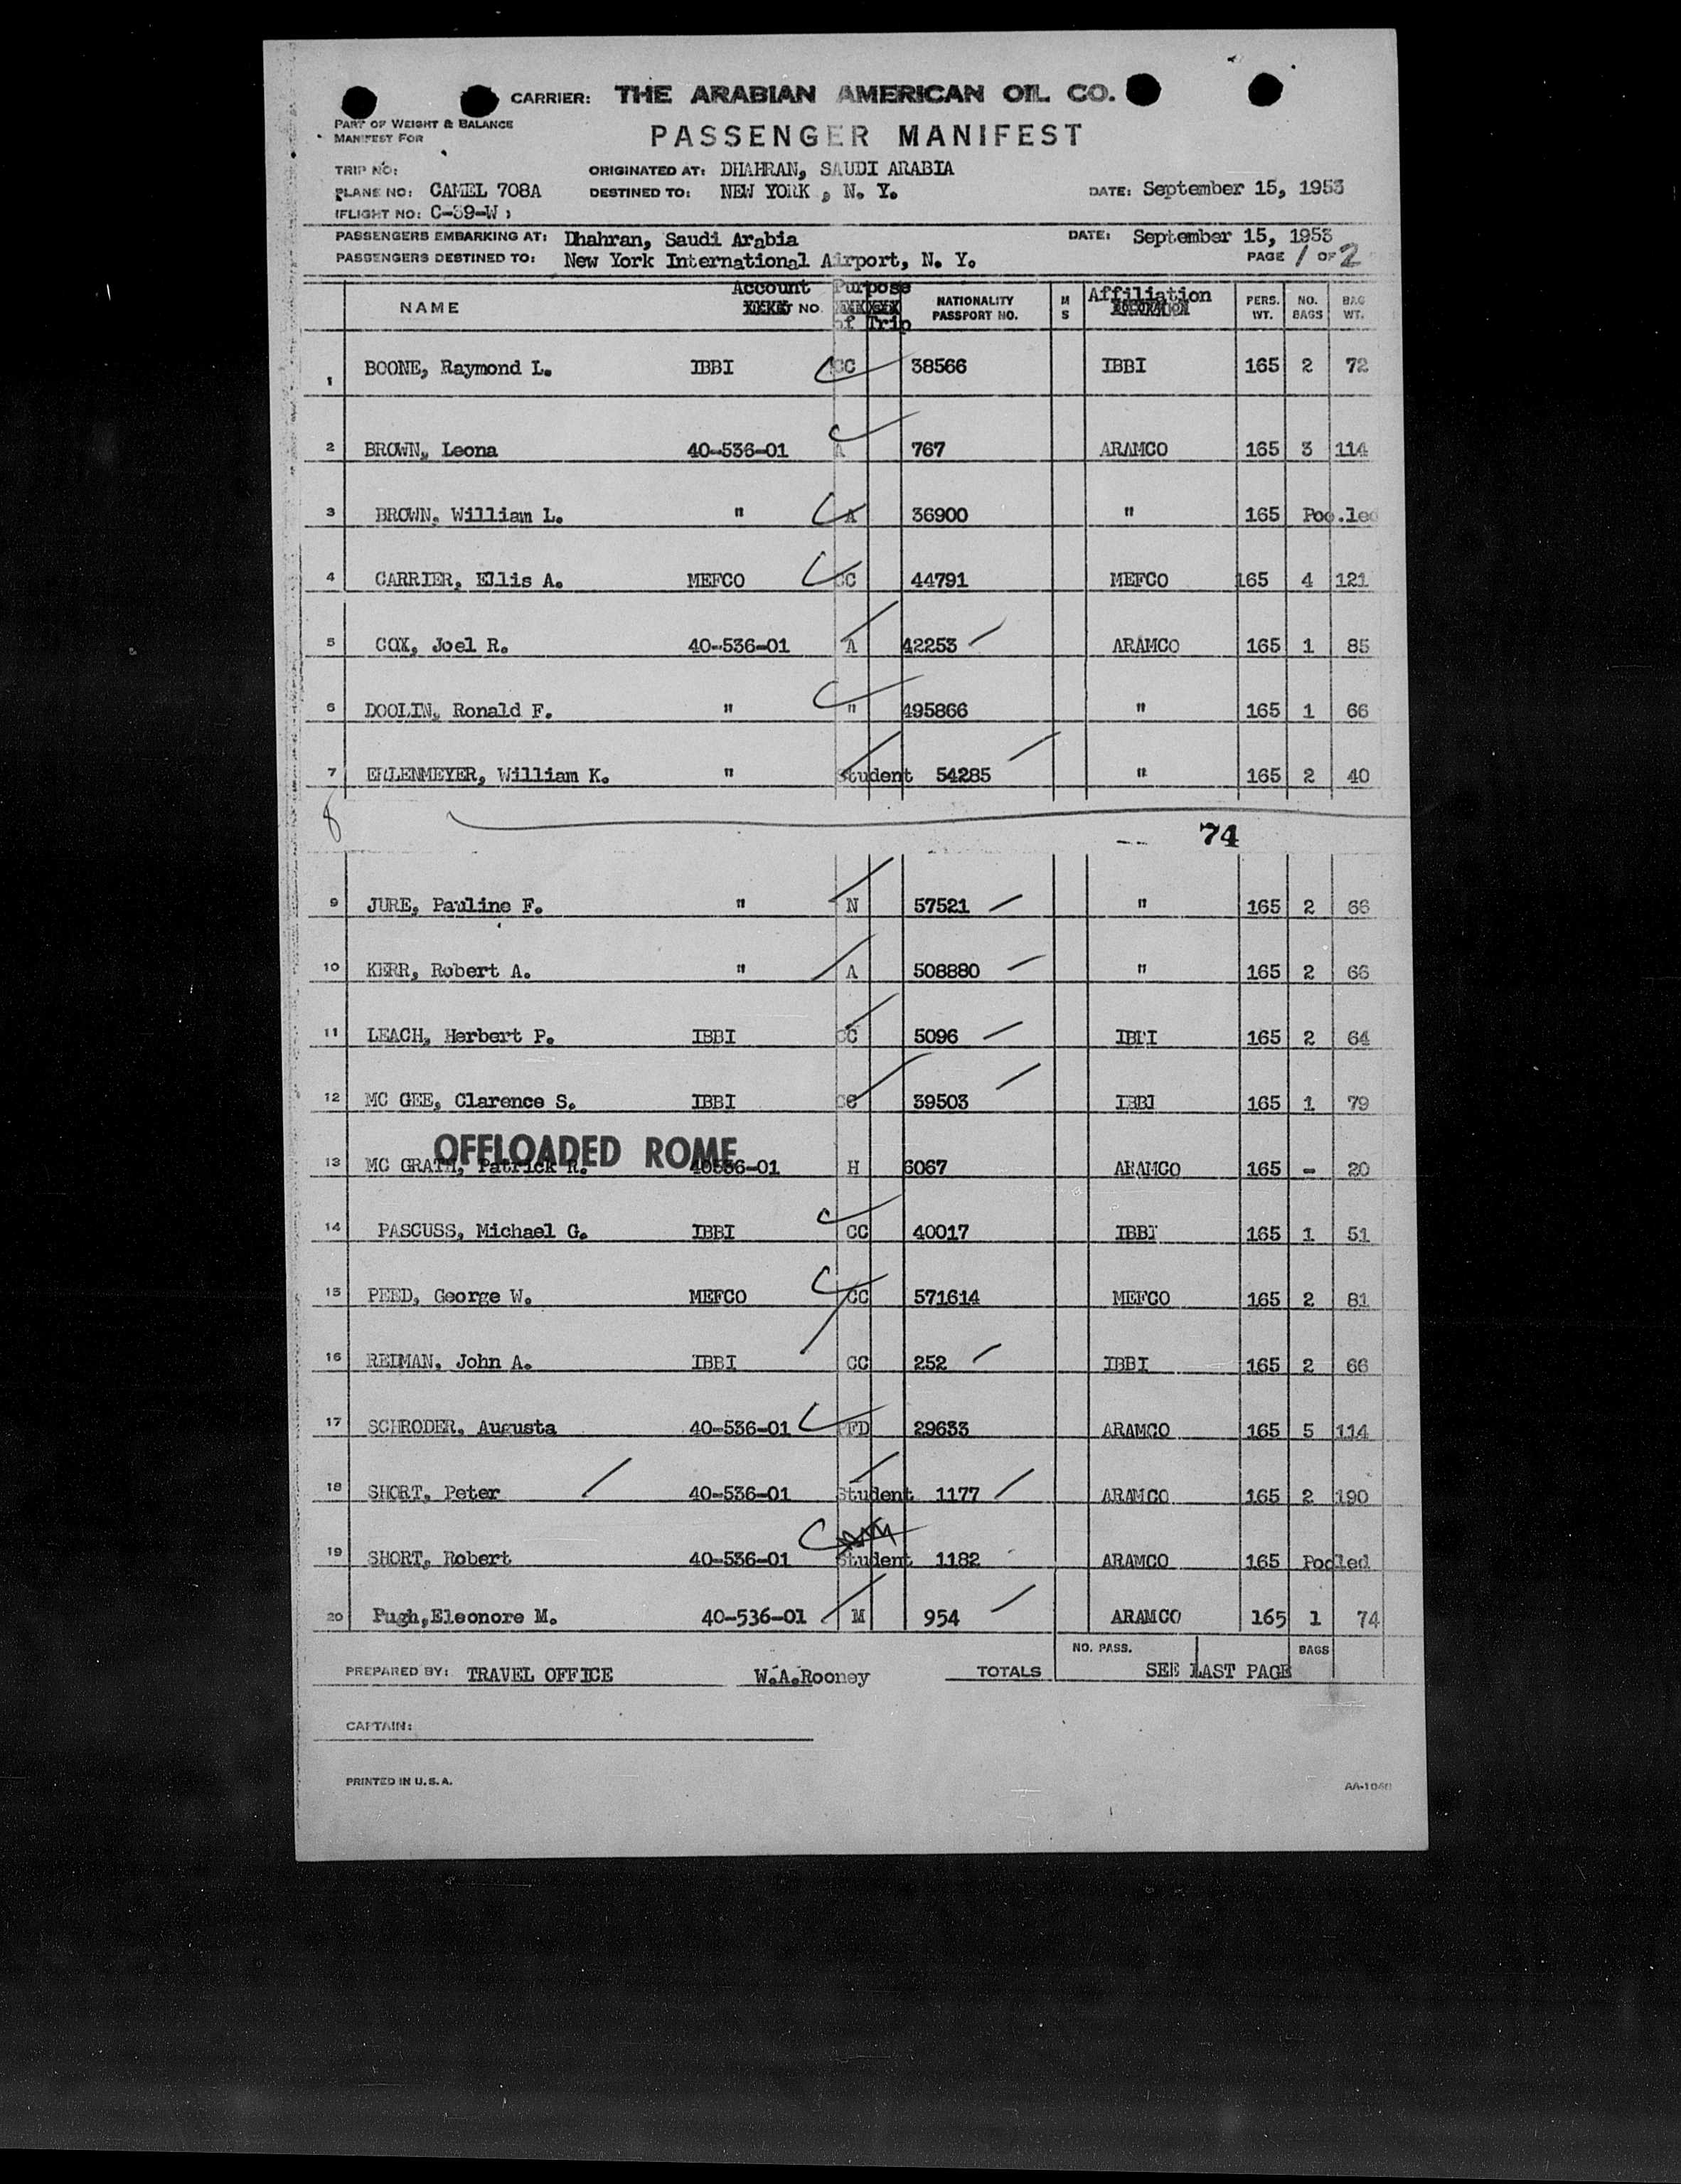 CARRIER: THE ARABIAN AMERICAN OIL CO.
PART OF WEIGHT & BALANCE
MANIFEST FOR
PASSENGER MANIFEST
TRIP NO: ORIGINATED AT: DHAHRAN, SAUDI ARABIA
PLANE NO: CAMEL 708A DESTINED TO: NEW YORK , N. Y. DATE: September 15, 1953
(FLIGHT NO: C-39-W )
PASSENGERS EMBARKING AT: Dhahran, Saudi Arabia DATE: September 15, 1953
PASSENGERS DESTINED TO: New York International Airport, N. Y. PAGE 1 OF 2
NAME Account NO. Purpose of Trip NATIONALITY PASSPORT NO. M S Affiliation PERS. WT. NO. BAGS BAG WT.
1 BOONE, Raymond L. IBBI CC 38566 IBBI 165 2 72
2 BROWN, Leona 40-536-01 A 767 ARAMCO 165 3 114
3 BROWN. William L. " A 36900 " 165 Poo.led
4 CARRIER, Ellis A. MEFCO CC 44791 MEFCO 165 4 121
5 COX, Joel R. 40-536-01 A 42253 ARAMCO 165 1 85
6 DOOLIN, Ronald F. " " 495866 " 165 1 66
7 ERLENMEYER, William K. " Student 54285 " 165 2 40
8
74
9 JURE, Pauline F. " N 57521 " 165 2 66
10 KERR, Robert A. " A 508880 " 165 2 66
11 LEACH, Herbert P. IBBI CC 5096 IBBI 165 2 64
12 MC GEE, Clarence S. IBBI CC 39503 IBBI 165 1 79
OFFLOADED ROME
13 MC GRATH, Patrick R. 40536-01 H 6067 ARAMCO 165 - 20
14 PASCUSS, Michael G. IBBI CC 40017 IBBI 165 1 51
15 PEED, George W. MEFCO CC 571614 MEFCO 165 2 81
16 REIMAN. John A. IBBI CC 252 IBBI 165 2 66
17 SCHRODER. Augusta 40-536-01 PFD 29633 ARAMCO 165 5 114
18 SHORT, Peter 40-536-01 Student 1177 ARAMCO 165 2 190
19 SHORT, Robert 40-536-01 Student 1182 ARAMCO 165 Pooled
20 Pugh,Eleonore M. 40-536-01 M 954 ARAMCO 165 1 74
NO. PASS. BAGS
PREPARED BY: TRAVEL OFFICE W.A.Rooney TOTALS SEE LAST PAGE
CAPTAIN:
PRINTED IN U.S.A.